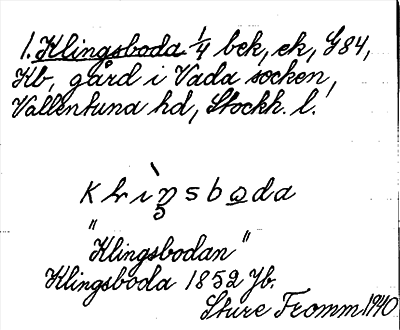 1. Klingsboda 1/4 bek, ek, G84,
Kb, gård i Vada socken,
Vallentuna hd, Stockh. l.
Klìŋsboda
"Klingsbodan"
Klingsboda 1852 Jb.
Sture Fromm 1940